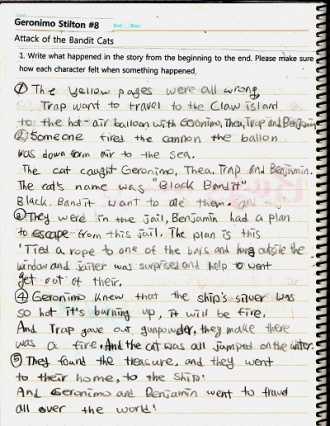 Geronimo Stilton #8
Attack of the Bandit Cats
1. Write what happened in the story from the beginning to the end. Please make sure
how each character felt when something happened.
① The yellow pages were all wrong
Trap want to travel to the Claw island
to the hot-air balloon with Geronimo, Thea, Trap and Benjamin
② Someone fired the cannon the balloon
was down form air to the sea.
The cat caught Geronimo, Thea, Trap and Benjamin.
The cat's name was "Black Bandit"
Black. Bandit want to ate them
③ They were in the jail, Benjamin had a plan
to escape from this jail. The plan is this
'Tied a rope to one of the bars and hung outside the
window and jailer was surprised and help to went
get out of their,
④ Geronimo knew that the ship's silver was
so hot it's burning up, it will be fire.
And Trap gave out gunpowder, they make there
was a fire. And the cat was all jumped on the water.
⑤ They found the treasure, and they went
to their home, to the ship!
And Geronimo and Benjamin went to travel
all over the world!